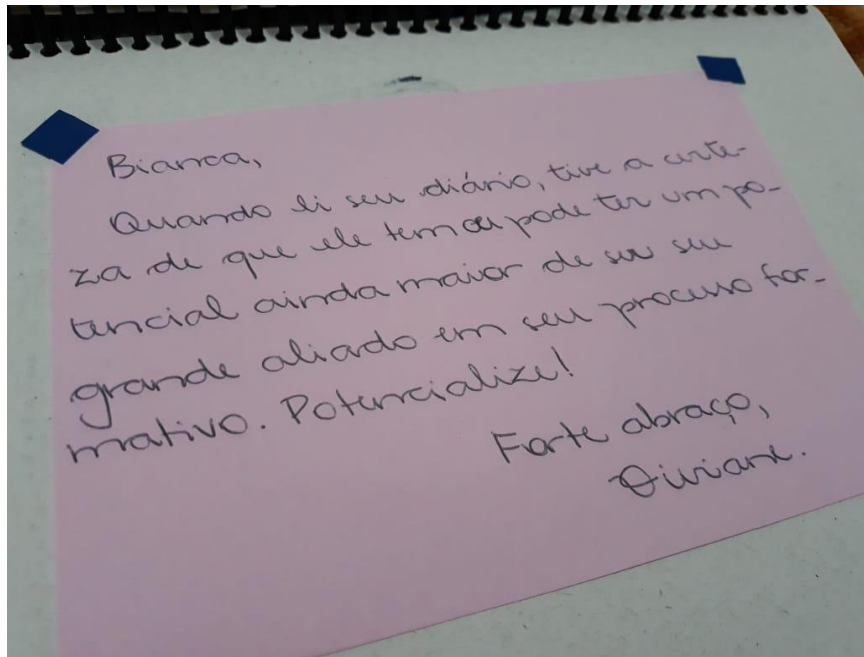 Bianca,
Quando li seu diário, tive a certe-
za de que ele tem ou pode ter um po-
tencial ainda maior de ser seu
grande aliado em seu processo for-
mativo. Potencialize!
Forte abraço,
Viviane.